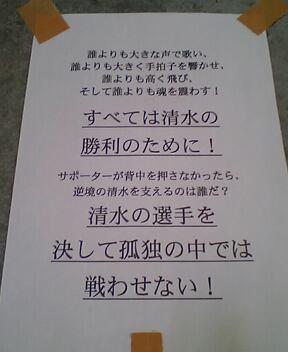 誰よりも大きな声で歌い、
誰よりも大きく手拍子を響かせ、
誰よりも高く飛び、
そして誰よりも魂を震わす！
すべては清水の
勝利のために！
サポーターが背中を押さなかったら、
逆境の清水を支えるのは誰だ？
清水の選手を
決して孤独の中では
戦わせない！